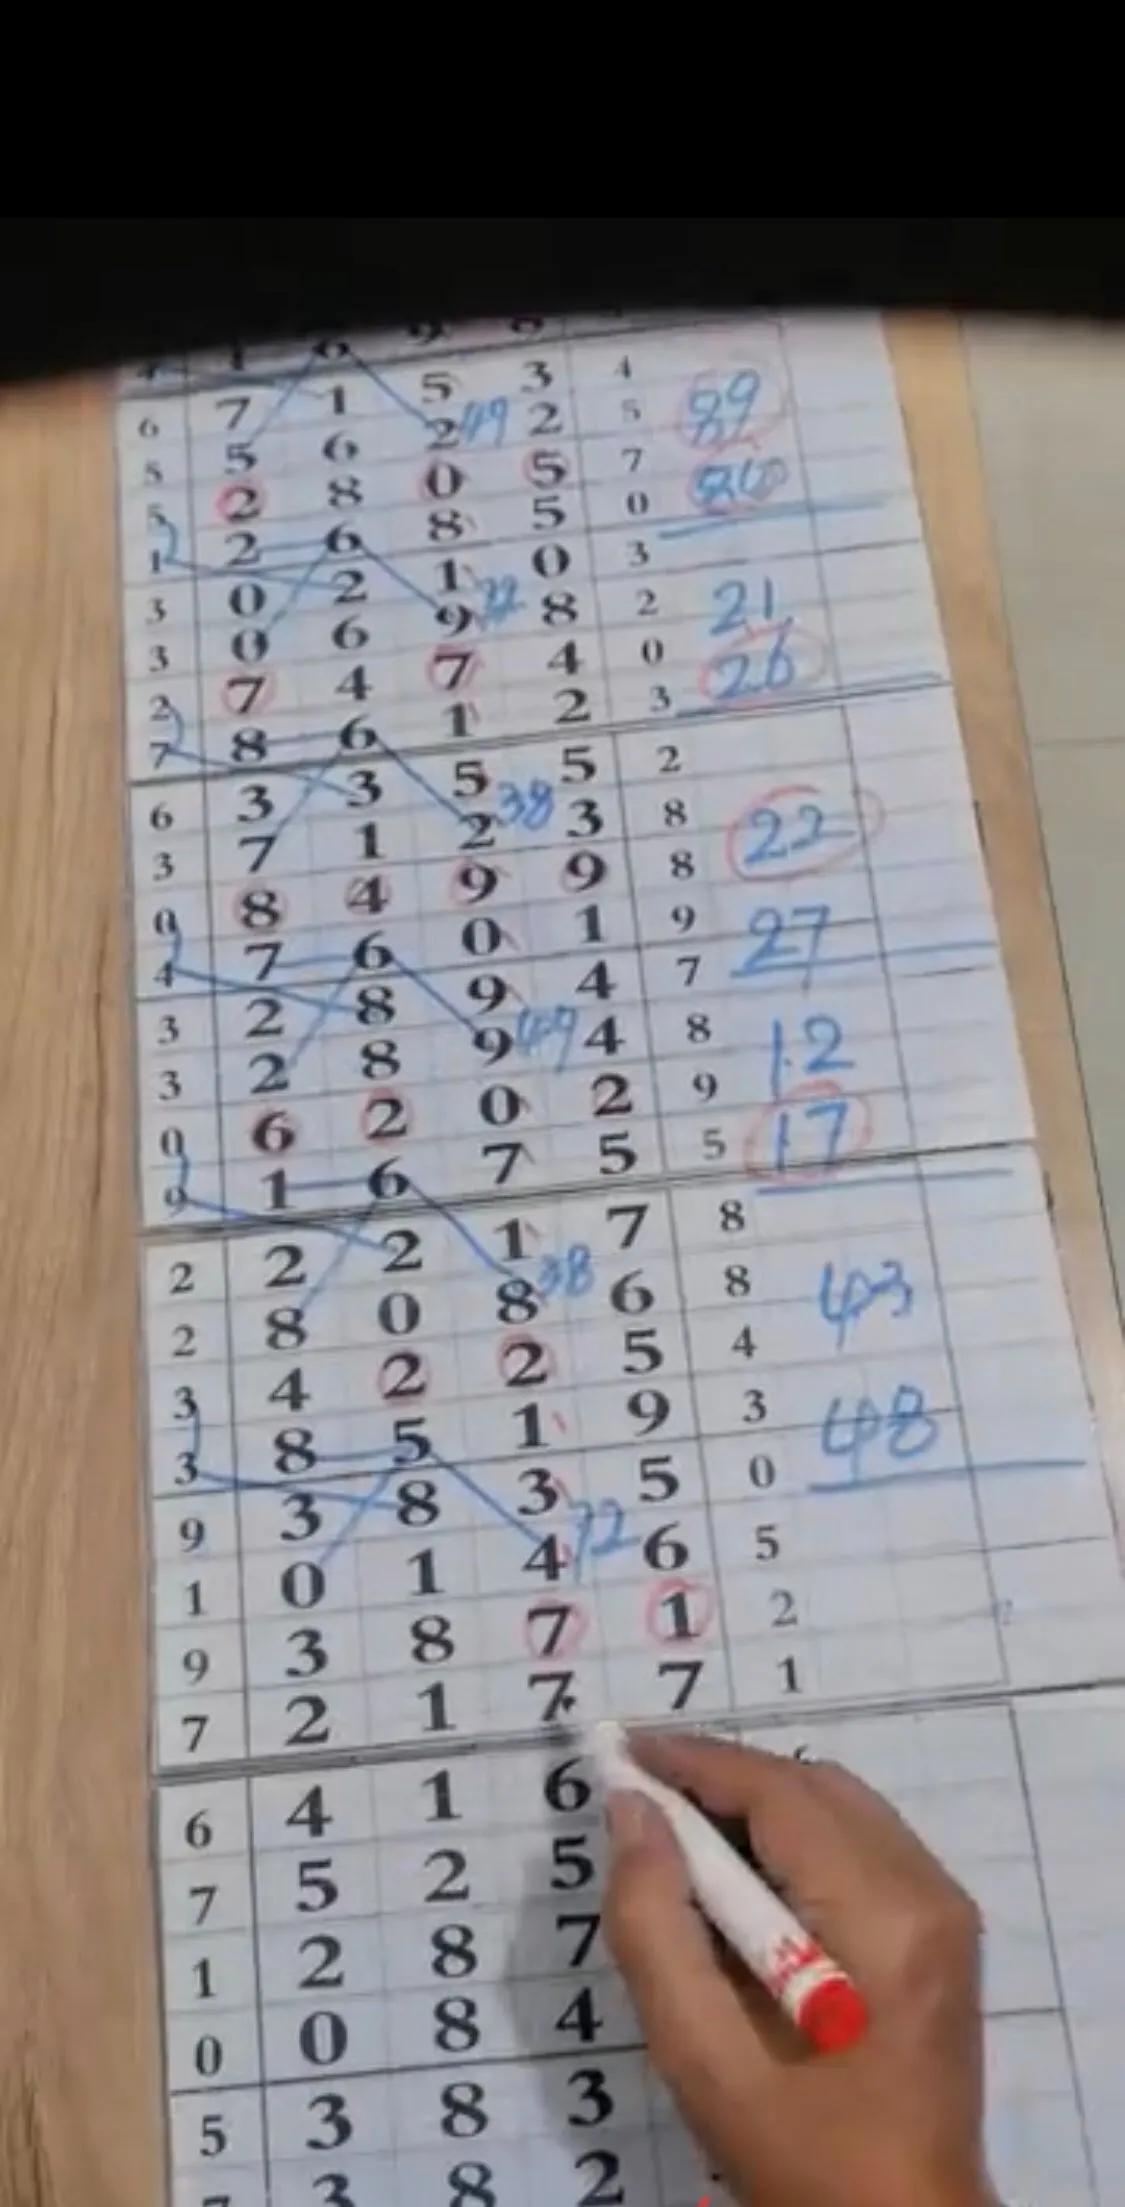 6 7 1 5 3 4
5 5 6 2 49 2 5 89
5 2 8 0 5 7
1 2 6 8 5 0
3 0 2 1 0 3
3 0 6 9 8 2 21
2 7 4 7 4 0 26
7 8 6 1 2 3
6 3 3 5 5 2
3 7 1 2 38 3 8 22
0 8 4 9 9 8
4 7 6 0 1 9 27
3 2 8 9 4 7
3 2 8 9 49 4 8 12
0 6 2 0 2 9 17
9 1 6 7 5 5
2 2 2 1 7 8
2 8 0 8 38 6 8 43
3 4 2 2 5 4
3 8 5 1 9 3 48
9 3 8 3 5 0
1 0 1 4 72 6 5
9 3 8 7 1 2
7 2 1 7 7 1
6 4 1 6
7 5 2 5
1 2 8 7
0 0 8 4
5 3 8 3
3 8 2